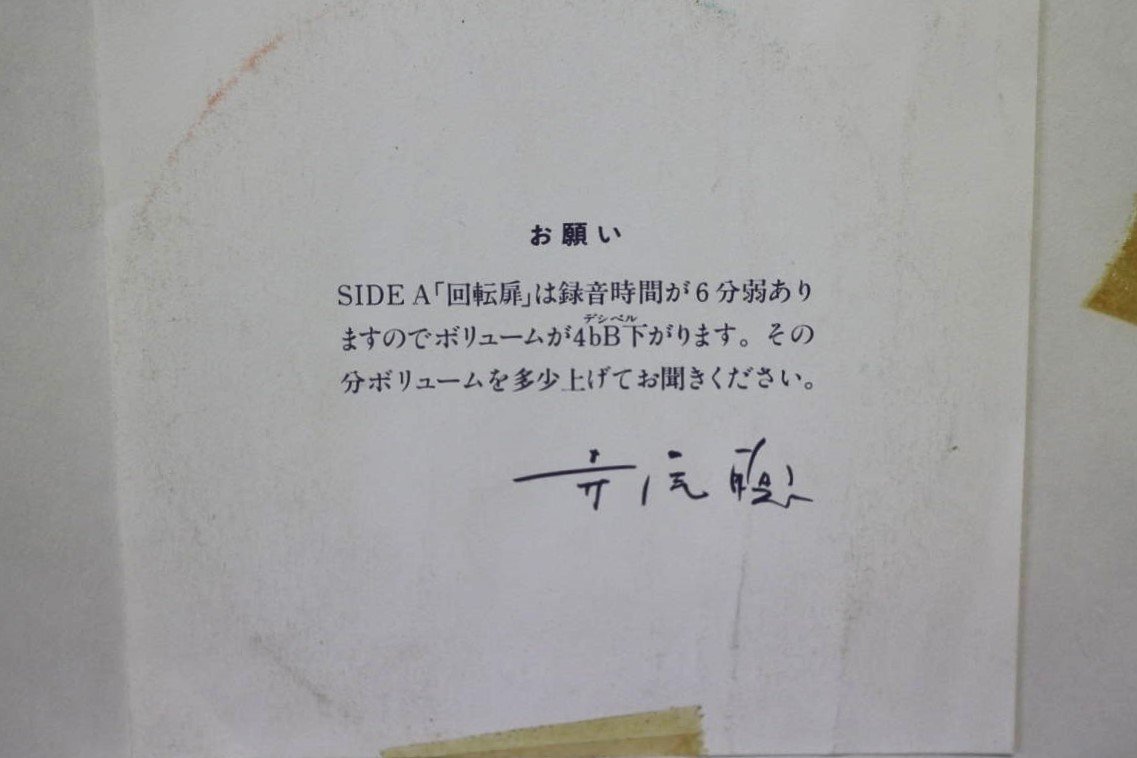 お願い
SIDE A「回転扉」は録音時間が6分弱あり
ますのでボリュームが4bB下がります。その
デシベル
分ボリュームを多少上げてお聞きください。